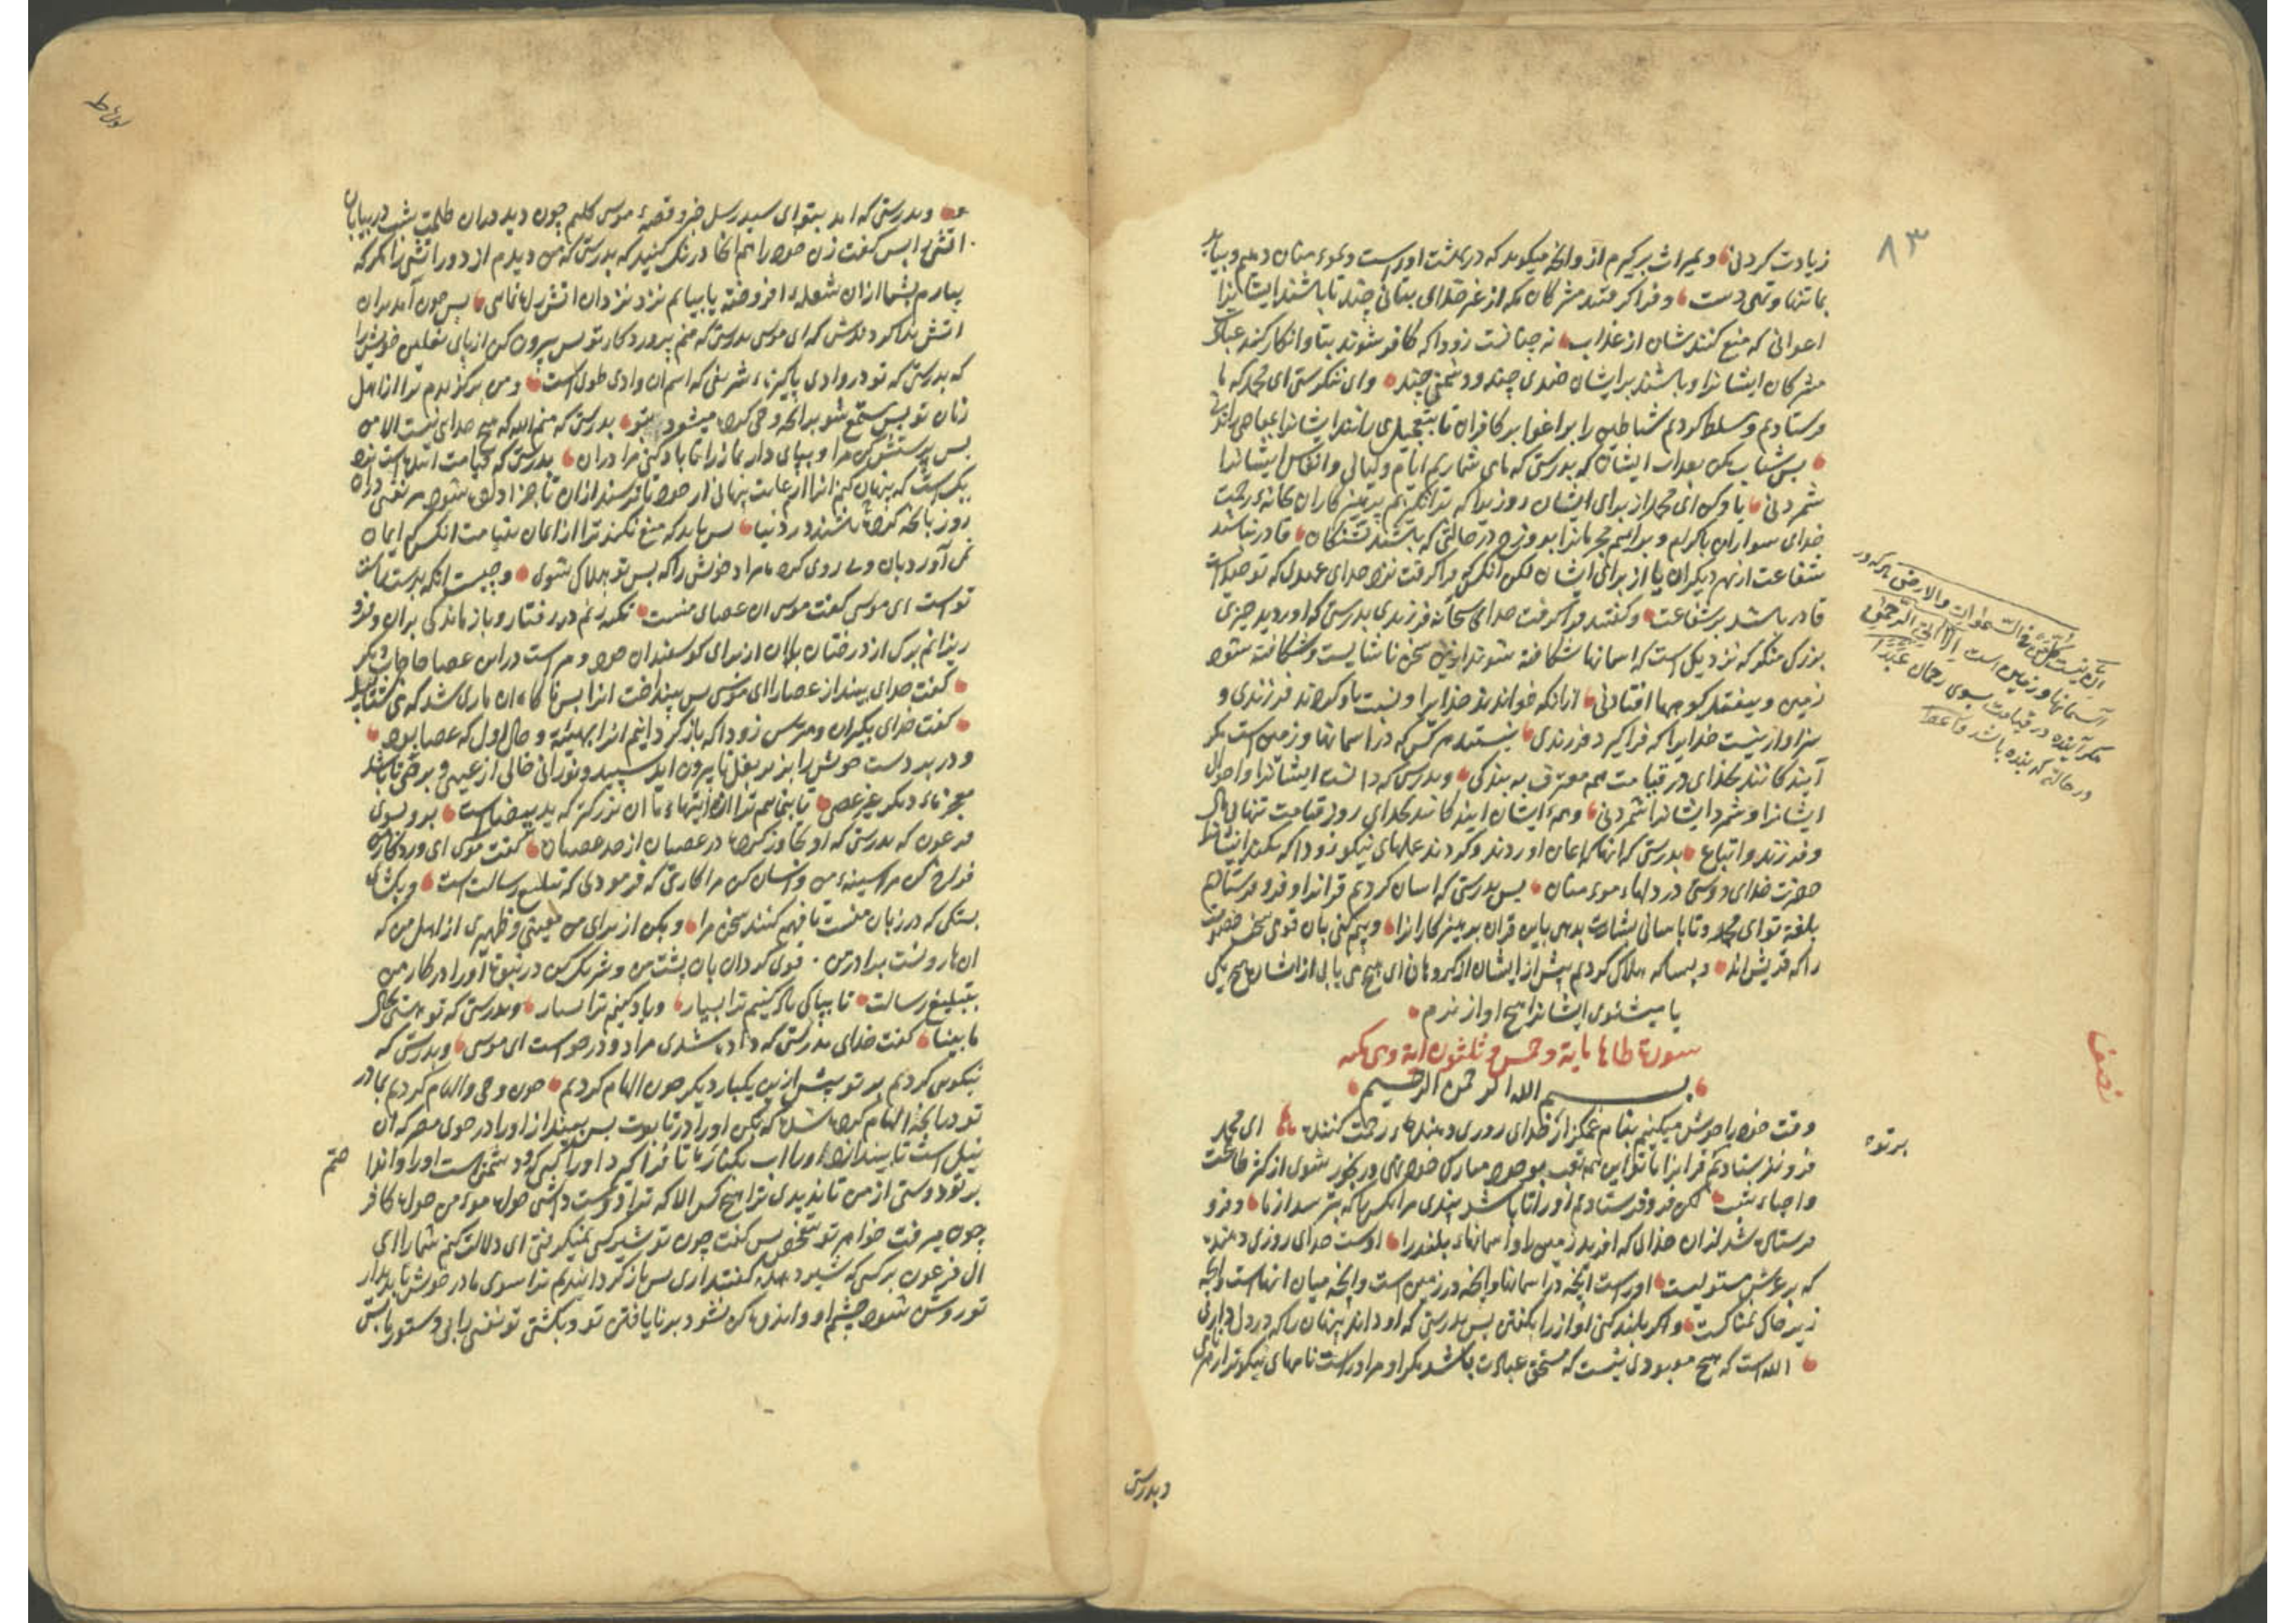 ۸۳
زیادت کردنی و میراث برگیرم از و آنچه میکوید که در بهشت اوراست و بموءمنان دهم و بیاید
بما تنها و تهی دست و فرا گرفتند مشرکان مکه از غیر خدای بتانی چند تا باشند ایشانرا
اعوانی که منع کنند شان از عذاب نه چنانست زود که کافر شوند بتان و انکار کنند عبادت
مشرکان ایشانرا و باشند بر ایشان ضدی چند و دشمنی چند وای ننکرستی ای محمد که ما
فرستادیم و مسلط کردیم شیاطین را بر اغوا بر کافران تا بتعجیل می رانند ایشانرا بمعاصی راندنی
پس شتاب مکن بعذاب ایشان که بدرستی که ما می شماریم ایام و لیالی و انفاس ایشانرا
شمردنی یاد کن ای محمد از برای ایشان روزیرا که برانکیزیم پرهیزکاران بخانهء رحمت
خدای سواران باکرام و برانیم مجرمانرا بدوزخ در حالتی که باشند تشنکان قادر نباشند
شفاعت از بهر دیکران یا از برای ایشان لکن آنکس فرا گرفت نزد خدای عهدی که توحید است
قادر باشد بر شفاعت و کفتند فرا گرفت خدای سبحانه فرزندی بدرستی که اوردید چیزی
بزرک منکر که نزدیک است که اسمانها شکافته شوند ازین سخن ناشایست و شکافته شود
زمین و بیفتد کوهها افتادنی از آنکه خواندند خدایرا و نسبت باو کردند فرزندی و
سزاوار نیست خدایرا که فرا گیرد فرزندی نیستند هر کس که در اسمانها و زمین است مکر
آیندکانند بخدای در قیامت هم معترف به بندکی و بدرستی که دانست ایشانرا و احوال
ایشانرا و شمرد ایشانرا شمردنی و همهء ایشان ایندکانند بخدای روز قیامت تنها بی مال
و فرزند و اتباع بدرستی که آنها که ایمان اوردند و کردند عملهای نیکو زود که بکند ایشانرا
حضرت خدای دوستی در دلهاء موءمنان پس بدرستی که اسان کردیم قرانرا و فرو فرستادیم
بلغة تو ای محمد تا باسانی بشارت بدهی باین قران پرهیزکارانرا و بیم کنی بان قومی سخت خصومت
را که قریش اند و بسا که هلاک کردیم پیش از ایشان از کروهان ای هیچ می یابی از ایشان هیچ یکی
یا میشنوی ایشانرا هیچ اواز نرم
سورة طاها مایة و خمس و ثلثون ایة و هی مکیه
بسم الله الرحمن الرحیم
وقت خود را خوش میکنیم بنام خدای روزی دهندهء رحمت کننده طه ای محمد
فرو نفرستادیم قرانرا بر تو تا این همه تعب بوجود مبارک خود نهی و رنجور شوی از کثرت طاعت
و احیاء شب لکن فرو فرستادیم اورا تا باشد پندی مر انکس را که بترسد از ما و فرو
فرستاده شد از ان خدای که افرید زمین را و اسمانهاء بلند را اوست خدای روزی دهنده
که بر عرش مستولیست اوراست آنچه در اسمانها و آنچه در زمین است و آنچه میان انهاست و آنچه
زیر خاک نمناکست و اکر بلند کنی اواز را بکفتن پس بدرستی که او داند پنهان را که در دل داری
الله است که هیچ معبودی نیست که مستحق عبادت باشد مکر او مر اوراست نامهای نیکوتر از همه
اِن کُلُّ مَن فِی السَّمٰوات والارض هر که در
آسمانها و زمین است اِلّا اٰتِی الرَّحمٰنِ
مکر آینده در قیامت بسوی رحمان عَبدًا
در حالتی که بنده باشد
نصف
بر تو
و بدرستی
و بدرستی که امد بتو ای سید رسل خبر و قصهء موسی کلیم چون دید در ان ظلمت شب در بیابان
اتشی را پس کفت زن خود را هم انجا درنک کنید که بدرستی که من دیدم از دور اتشی را مکر که
بیارم بشما از ان شعلهء افروخته یا بیابم نزد ان اتش پس چون آمد بران
اتش ندا کرده شد که ای موسی بدرستی که منم پروردکار تو پس بیرون کن از پای نعلین خویش را
که بدرستی که تو در وادی پاکیزهء شریفی که اسم ان وادی طوی است و من برکزیدم ترا از اهل
زمان تو پس مستمع شو بر آنچه وحی کرده میشود بتو بدرستی که منم الله که هیچ خدای نیست الا من
پس پرستش کن مرا و بپای دار نماز را تا یاد کنی مرا در ان بدرستی که قیامت اینده است نزد
یک است که پنهان کنم انرا از غایت پنهانی از خود تا ترسند از ان تا جزا داده شود هر نفسی در ان
روز بآنچه کرده باشند در دنیا پس باید که منع نکند ترا از ایمان بقیامت انکس که ایمان
نمی آورد بان و پی روی کرده مراد خویش را که پس تو هلاک شوی و چیست آنکه بدست راست
تو است ای موسی کفت موسی ان عصای منست تکیه زنم در رفتار و باز ماندکی بران و فرو
ریزانم برک از درختان بان از برای کوسفندان خود و مراست در این عصا حاجات دیکر
کفت خدای بینداز عصا را ای موسی پس بینداخت انرا پس ناکاه ان ماری شد که می شتابید
کفت خدای بکیر ان و مترس زود که باز کردانیم انرا بهیئة و حال اول که عصا بود
و در بر دست خویش را بزیر بغل تا بیرون اید سپید و نورانی خالی از عیب و برص تا باشد
معجزهاء دیکر غیر عصا تا بنماییم ترا از ایتهاء ما ان بزرکتر که ید بیضاست برو بسوی
فرعون که بدرستی که او تجاوز کرده در عصیان از حد عصیان کفت موسی ای پروردکار
فراخ کن مرا سینهء من و اسان کن مرا کاری که فرمودی که تبلیغ رسالت است و بکشای
بستکی که در زبان منست تا فهم کنند سخن مرا و بکن از برای من معینی و ظهیری از اهل من که
ان هارونست برادر من قوی کردان بان پشت من و شریک کن در نبوت اورا در کار من
بتبلیغ رسالت تا بپاکی یاد کنیم ترا بسیار و یاد کنیم ترا بسیار و بدرستی که تو هستی بحال
ما بینا کفت خدای بدرستی که داده شدی مراد و درخواست ای موسی و بدرستی که
نیکویی کردیم بر تو پیش ازین یکبار دیکر چون الهام کردیم چون وحی و الهام کردیم بمادر
تو در آنچه الهام کرده شد که بکن اورا در تابوت پس بینداز اورا در جوی مصر که ان
نیل است تا بیندازد اورا اب بکنار تا فرا کیرد اورا کسی که دشمن است اورا و انداختم
بر تو دوستی از من تا ندیدی ترا هیچ کس الا که ترا دوست داشتی خواه موءمن خواه کافر
چون میرفت خواهر تو بتفحص پس کفت چون تو شیر کسی نمیکرفتی ای دلالت کنم شما را ای
ال فرعون بر کسی که شیر دهد و نکهداری پس باز کردانیدیم ترا سوی مادر خویش تا بدیدار
تو روشن شود چشم او و اندوهناک نشود بر نایافتن تو و بکشتی تو نفسی را بی دستور